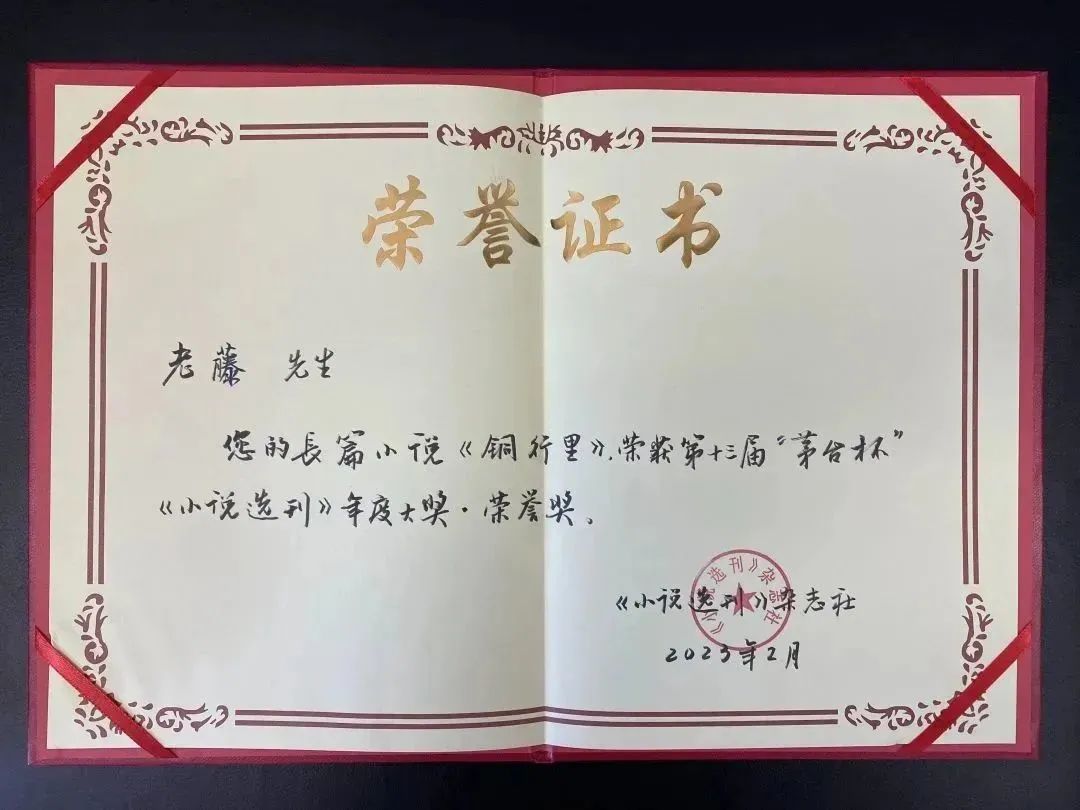 荣誉证书
老藤 先生
您的長篇小说《铜行里》，荣获第十三届“茅台杯”
《小说选刊》年度大奖·荣誉奖。
《小说选刊》杂志社
《小说选刊》杂志社
2023年2月